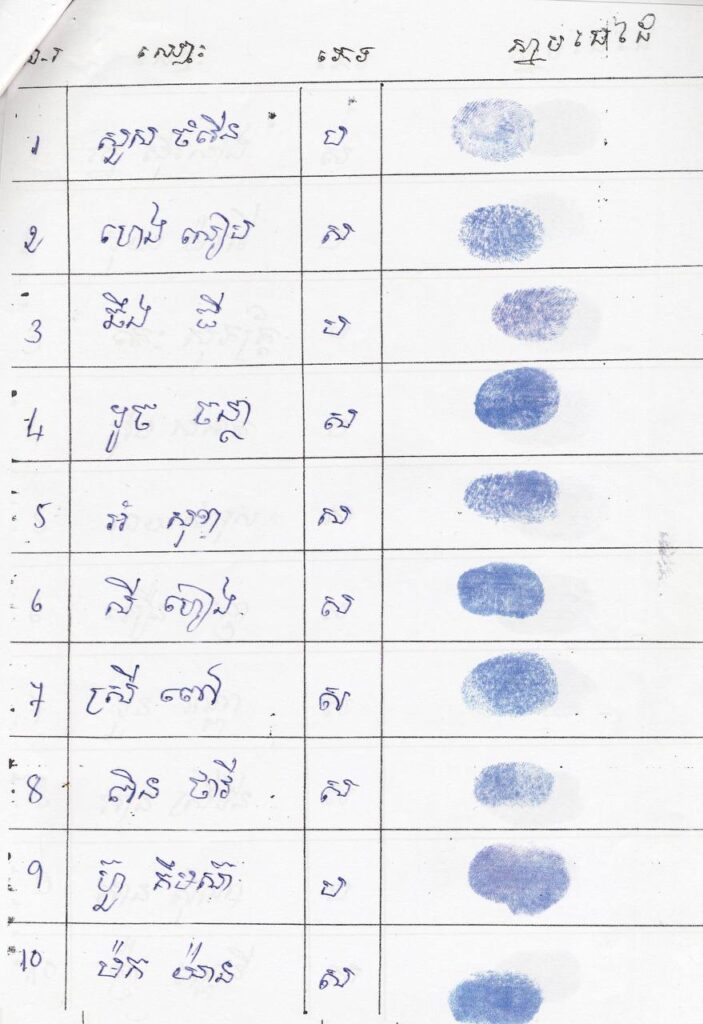 ល.រ ឈ្មោះ ភេទ ស្នាមមេដៃ
1 សួស ចំរើន ប
2 ហេង សៀម ស
3 ឆឹង ធី ប
4 អូច ចន្ថា ស
5 អំ សុខា ស
6 សី ហៀង ស
7 ស្រី ពៅ ស
8 ពិន ថាវី ស
9 ហ៊្វា គឹមសាន ប
10 ម៉ក យ៉ាន ស